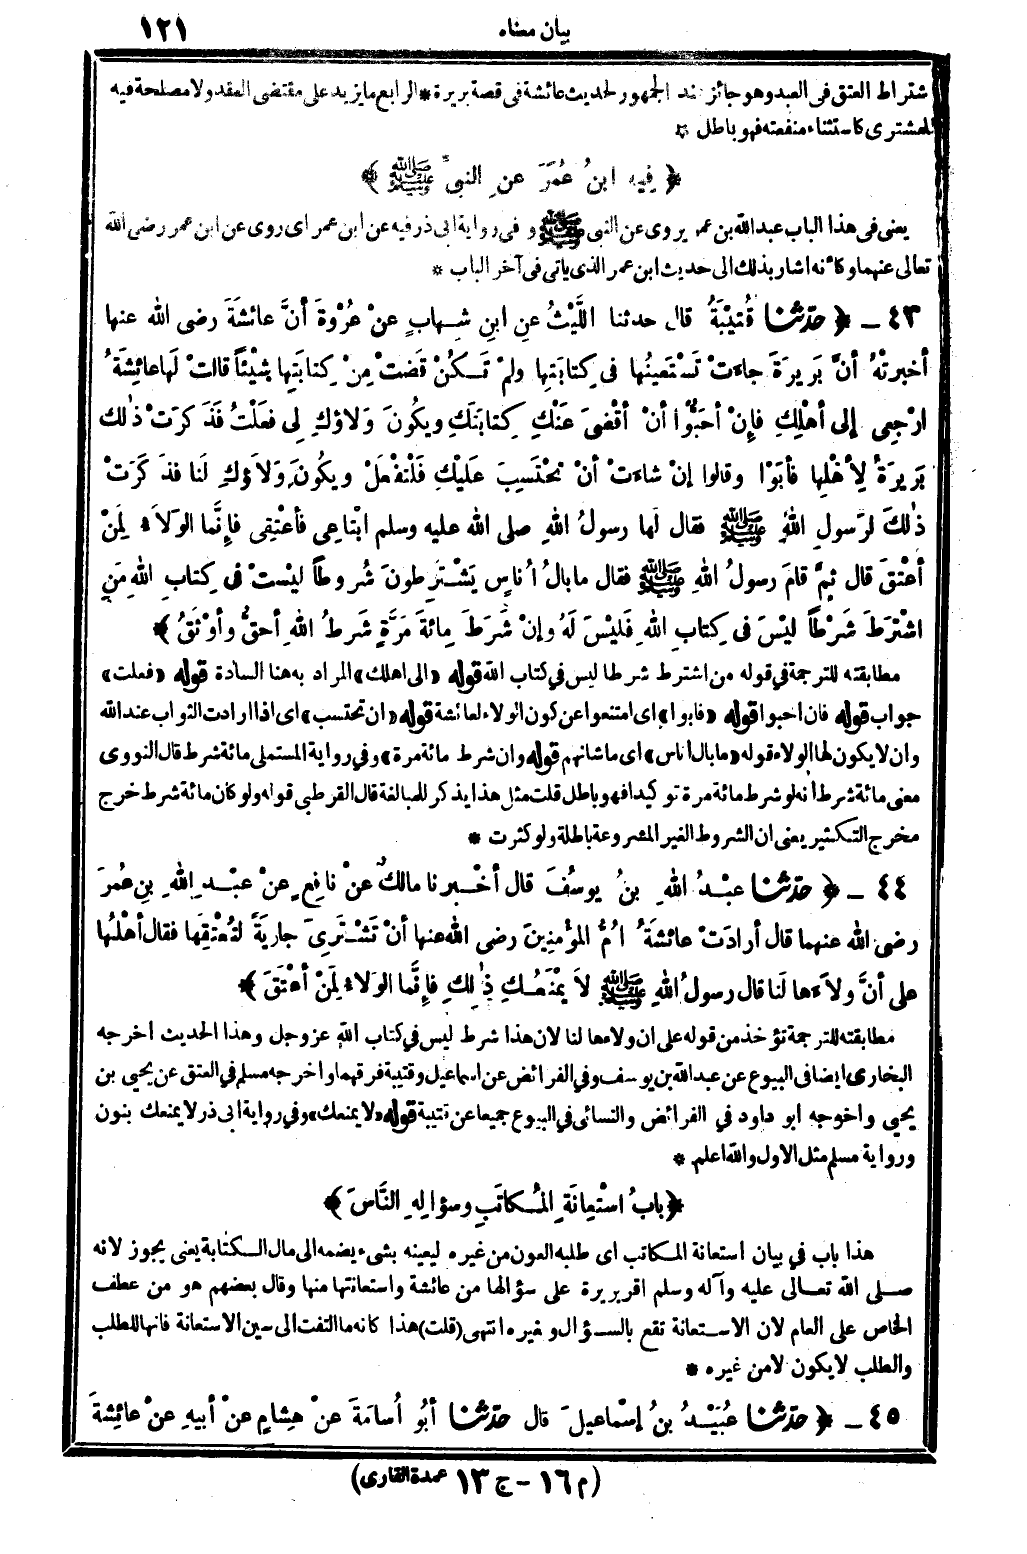 بيان معناه
١٢١
شتراط العتق فى العبد وهو جائز عند الجمهور لحديث عائشة فى قصة بريرة * الرابع ما يزيد على مقتضى العقد ولا مصلحة فيه
للمشترى كاستثناء منفعته فهو باطل *
﴿ فِيهِ ابنُ عُمَرَ عنِ النبىِّ ﷺ ﴾
يعنى فى هذا الباب عبدالله بن عمر يروى عن النبى ﷺ و فى رواية ابى ذر فيه عن ابن عمر اى روى عن ابن عمر رضى الله
تعالى عنهما وكأنه اشار بذلك الى حديث ابن عمر الذى ياتى فى آخر الباب *
٤٣ ـ ﴿ حدّثنا قُتَيْبَةُ قال حدثنا اللَّيْثُ عنِ ابنِ شِهابٍ عنْ عُرْوَةَ أنَّ عائشَةَ رضى الله عنها
أخبرتْهُ أنَّ بَرِيرَةَ جاءتْ تَسْتَعِينُها فى كِتابَتِها ولمْ تَكُنْ قَضَتْ مِنْ كِتابَتِها شَيْئاً قالتْ لَها عائِشَةُ
ارْجِعِى إلى أهْلِكِ فإنْ أحَبُّوا أنْ أقْضِىَ عَنْكِ كِتابَتَكِ ويكُونَ وَلاؤكِ لِى فعَلْتُ فَذَكَرَتْ ذٰلك
بَرِيرَةُ لِأهْلِها فأبَوْا وقالوا إنْ شاءتْ أنْ تحْتَسِبَ عَليْكِ فلْتَفْعَلْ ويكُونَ وَلاَؤكِ لَنا فذكَرَتْ
ذٰلكَ لرَسولِ اللهِ ﷺ فقال لَها رسولُ اللهِ صلى الله عليه وسلم ابْتاعِى فأعْتِقِى فإنَّما الوَلاَءُ لِمَنْ
أعْتَقَ قال ثمَّ قامَ رسولُ اللهِ ﷺ فقال ما بالُ أُناسٍ يَشْتَرِطونَ شُروطاً ليْستْ فى كِتابِ اللهِ مَنِ
اشْتَرَطَ شَرْطاً ليْسَ فى كِتابِ اللهِ فَليْسَ لَهُ وإنْ شَرَطَ مِائَةَ مَرَّةٍ شَرطُ اللهِ أحقُّ وأوْثَقُ ﴾
مطابقته للترجمة في قوله من اشترط شرطا ليس في كتاب الله قوله «الى اهلك» المراد به هنا السادة قوله «فعلت»
جواب قوله فان احبوا قوله «فابوا» اى امتنعوا عن كون الولاء لعائشة قوله «ان تحتسب» اى اذا ارادت الثواب عند الله
وان لا يكون لها الولاء قوله «ما بال أناس» اى ما شانهم قوله وان شرط مائة مرة» وفي رواية المستملى مائة شرط قال النووى
معنى مائة شرط أنه لو شرط مائة مرة توكيدا فهو باطل قلت مثل هذا يذكر للمبالغة قال القرطبي قوله ولو كان مائة شرط خرج
مخرج التكثير يعنى ان الشروط الغير المشروعة باطلة ولو كثرت *
٤٤ ـ ﴿ حدّثنا عبْدُ اللهِ بنُ يوسُفَ قال أخْبرنا مالكٌ عنْ نافِعٍ عنْ عبْدِ اللهِ بنِ عُمرَ
رضى الله عنهما قال أرادَتْ عائشَةُ أُمُّ المؤْمنِينَ رضى الله عنها أنْ تشْتَرِىَ جارِيَةً لتُعْتِقِها فقال أهْلُها
على أنَّ ولاَءَها لَنا قال رسولُ اللهِ ﷺ لاَ يمْنَعُكِ ذٰلِكِ فإنَّما الوَلاءُ لِمَنْ أعْتَقَ ﴾
مطابقته للترجمة تؤخذ من قوله على ان ولاءها لنا لان هذا شرط ليس في كتاب الله عز وجل وهذا الحديث اخرجه
البخارى ايضا فى البيوع عن عبدالله بن يوسف وفي الفرائض عن اسماعيل وقتيبة فرقهما واخرجه مسلم في العتق عن يحيى بن
يحيى واخرجه ابو داود في الفرائض والنسائى في البيوع جميعا عن قتيبة قوله «لا يمنعك» وفي رواية ابى ذر لا يمنعنك بنون
ورواية مسلم مثل الاول والله اعلم *
﴿ بابُ استْعِانَةِ المُكاتَبِ وسؤالِهِ النَّاسَ ﴾
هذا باب في بيان استعانة المكاتب اى طلبه العون من غيره ليعينه بشىء يضمه الى مال الكتابة يعنى يجوز لانه
صلى الله تعالى عليه وآله وسلم اقر بريرة على سؤالها من عائشة واستعانتها منها وقال بعضهم هو من عطف
الخاص على العام لان الاستعانة تقع بالسؤال وغيره انتهى (قلت) هذا كانه ما التفت الى سين الاستعانة فانها للطلب
والطلب لا يكون لا من غيره *
٤٥ ـ ﴿ حدّثنا عُبَيْدُ بنُ إسْماعيلَ قال حدّثنا أبُو أُسامَةَ عنْ هِشامٍ عنْ أبيهِ عنْ عائِشةَ
(م ١٦ - ج ١٣ عمدة القارى)